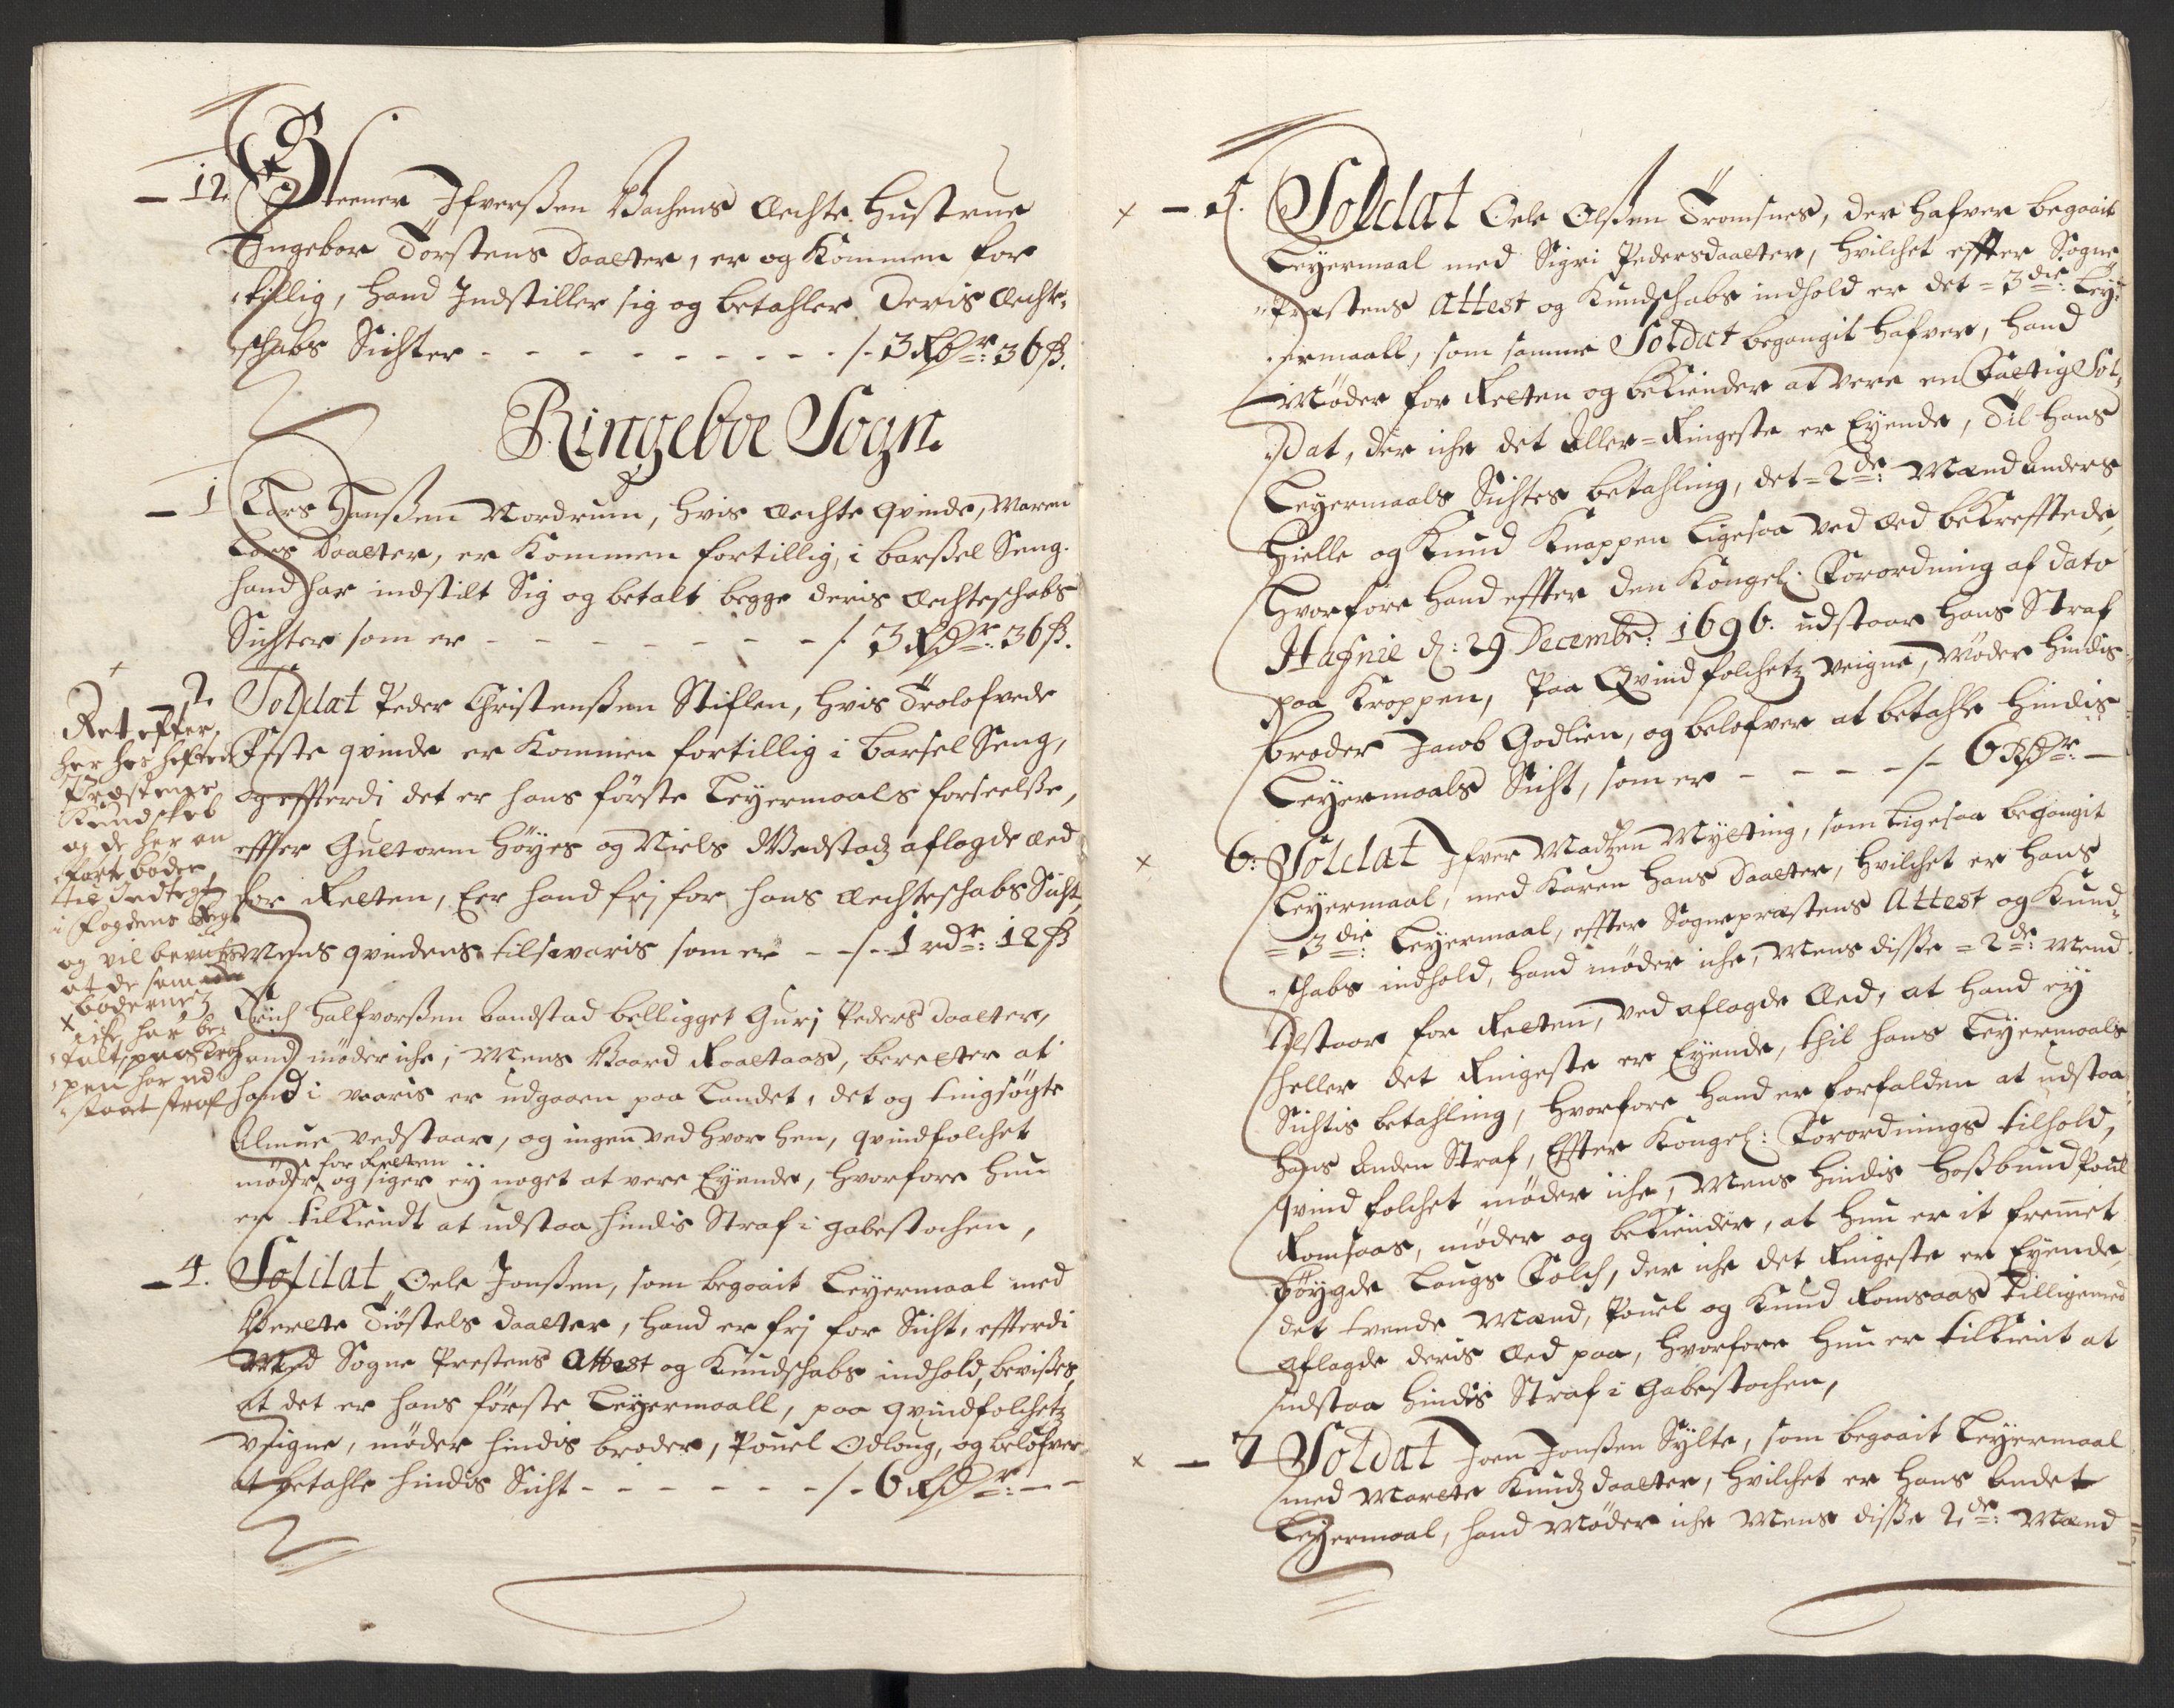 12. Steener Ifverßen Bachens Æchte Hustrue
Ingebor Torstens Daatter, er og Kommen for
tillig, hand Indstiller sig og betahler Deris Æchte-
schabs Sichter - - - - - - - - - /- 3 Rdr: 36 ß.
Ringeboe Sogn.
1 Lars Hanßen Nordrum, hvis Æchte qvinde, Maren
Lars Daatter, er Kommen fortillig, i barßel Seng.
hand har indstilt Sig og betalt begge deris Ægteschabs
Sichter som er - - - - - - - /. 3 Rdr: 36 ß.
2. Soldat Peder Christenßen Stiflen, hvis Trolofvede
Feste qvinde er Kommen fortillig i barsel Seng,
og effterdi det er hans förste Leyermaals forseelße,
effter Guttorm Höyes og Niels Vedstad aflagde Æd
for Retten, Eer hand fri for hans Æchteschabs Sicht,
Mens qvindens tilsvaris som er - - /- 1 rdr: 12 ß
Erich Halfvorßen bandstad belligget Guri Peders daatter,
hand möder iche, Mens Baard Raattaas, beretter at
hand i vaaris er udgaaen paa Landet, det og tingsögte
Almue vedstaar, og ingen ved hvor hen, qvindfolchet
möder for Retten og siger ey noget at vere Eyende, hvorfore hun
er tilkiendt at udstaa hindis Straf i gabestochen,
4. Soldat Oele Jonßen, som begaait Leyermaal med
Berete Tiöstels daatter, hand er fri for Sicht, effterdi
Med Sogne Prestens Attest og Kundschabs indhold, bevißes,
at det er hans förste Leyermaall, paa qvindfolchetz
veigne, möder hindis broder, Pouel Odloug, og belofver
at betahle hindis Sicht - - - - - - /- 6 Rdr: - -
Ret effter
her hos hefted
Præstens
Kundskab
og de her an
förte böder
til Indtegt
i Fogdens Regs
og vil bevises
at de som
böderne
x icke har be-
talt, paa Krop-
pen har ud-
staaet straf
x - 5. Soldat Oele Olßen Tromsnes, der hafver begaait
Leyermaal med Sigri Pedersdaatter, hvilchet effter Sogne
Præstens Attest og Kundschabs indhold er det = 3die: Ley-
ermaall, som samme Soldat begangit hafver, hand
Möder for Retten og bekiender at vere en Fattig Sol-
dat, der iche det Aller=Ringeste er Eyende, Til hans
Leyermaals Sichtes betahling, det = 2de: Mænd Anders
Hielle og Knud Knappen Ligesaa ved Æd bekrefftede,
Hvorfore hand effter den Kongel: Forordning af dato
Hafnie d: 29 Decembr: 1696. udstaar hans Straf
paa Kroppen, Paa Qvindfolchetz veigne, Möder hindis
broder Jacob Godlien, og belofver at betahle hindis
Leyermaals Sicht, som er - - - - /- 6 Rdr: -
x 6: Soldat Ifver Madtzen Mytting, som ligesaa begangit
Leyermaal, med Karen Hans Daatter, hvilchet er hans
= 3die: Leyermaal, effter Sognepræstens Attest og Kund-
schabs indhold, hand möder iche, Mens disße = 2de: Mend
tilstaar for Retten, ved aflagde Æd, at hand ey
heller det Ringeste er Eyende, till hans Leyermaals
Sichtis betahling, hvorfore hand er forfalden at udstaa
hans Anden Straf, Effter Kongel: Forordnings tilhold,
qvindfolchet möder iche, Mens hindis Hoßbund Pouel
Romsaas, möder og bekiender, at hun er it fremmet
böygde Laugs Folch, der iche det Ringeste er Eyende,
det tvende Mænd, Pouel og Knud Romsaas tilligemed
aflagde deris Æd paa, hvorfore hun er tilkient at
udstaa hindis Straf i Gabestochen,
x - 7 Soldat Joen Jonßen Sylte, som begaait Leyermaal
med Marete Knudz daatter, hvilchet er hans Andet
Leyermaal, hand Möder iche Mens disße 2de: Mænd